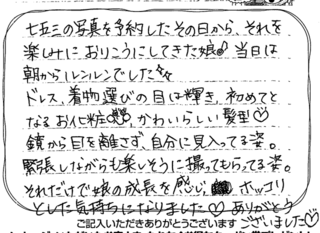 七五三の写真を予約したその日から、それを
楽しみにおりこうにしてきた娘♪ 当日は
朝からルンルンでした☆
ドレス、着物選びの目は輝き、初めてと
なるお化粧、かわいらしい髪型♡
鏡から目を離さず、自分に見入ってる姿。
緊張しながらも楽しそうに撮ってもらってる姿。
それだけで娘の成長を感じ、ホッコリ
とした気持ちになりました♡ ありがとう
ご記入いただきありがとうございます ございました♡